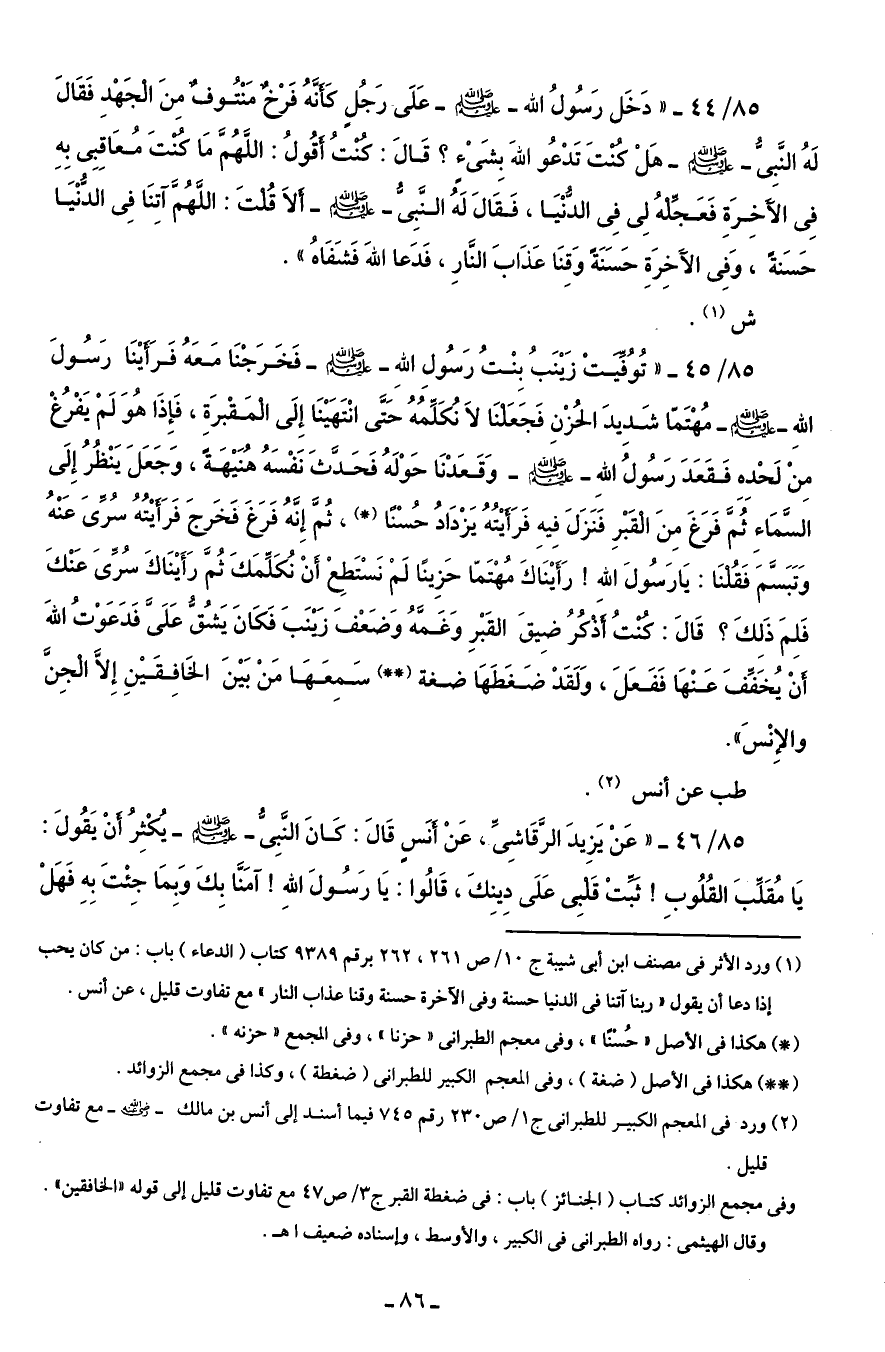 ٤٤/٨٥ ـ « دَخَل رَسُولُ الله ـ ﷺ ـ عَلَى رَجُلٍ كَأَنَّهُ فَرْخٌ مَنْتُوفٌ مِنَ الْجَهْدِ فَقَالَ
لَهُ النَّبِىُّ ـ ﷺ ـ هَلْ كُنْتَ تَدْعُو اللهَ بِشَىْءٍ ؟ قَالَ : كُنْتُ أَقُولُ : اللَّهُمَّ مَا كُنْتَ مُعَاقِبِى بِهِ
فِى الأَخِرَةِ فَعَجِّلْهُ لِى فِى الدُّنْيَا ، فَقَالَ لَهُ النَّبِىُّ ـ ﷺ ـ أَلاَ قُلْتَ : اللَّهُمَّ آتِنَا فِى الدُّنْيَا
حَسَنَةً ، وَفِى الأَخِرَةِ حَسَنَةً وَقِنَا عَذَابَ النَّارِ ، فَدَعَا اللهَ فَشَفَاهُ » .
ش (١) .
٤٥/٨٥ ـ « تُوُفِّيَتْ زَيْنَبُ بِنْتُ رَسُولِ الله ـ ﷺ ـ فَخَرَجْنَا مَعَهُ فَرَأَيْنَا رَسُولَ
الله ـ ﷺ ـ مُهْتَمّا شَدِيدَ الحُزْنِ فَجَعَلْنَا لاَ نُكَلِّمُهُ حَتَّى انْتَهَيْنَا إِلَى الْمَقْبَرَةِ ، فَإِذَا هُوَ لَمْ يَفْرُغْ
مِنْ لَحْدِهِ فَقَعَدَ رَسُولُ الله ـ ﷺ ـ وَقَعَدْنَا حَوْلَهُ فَحَدَّثَ نَفْسَهُ هُنَيْهَةً ، وَجَعَلَ يَنْظُرُ إِلَى
السَّمَاءِ ثُمَّ فَرَغَ مِنَ الْقَبْرِ فَنَزَلَ فِيهِ فَرَأَيْتُهُ يَزْدَادُ حُسْنًا (*) ، ثُمَّ إِنَّهُ فَرَغَ فَخَرجَ فَرَأَيْتُهُ سُرِّىَ عَنْهُ
وَتَبَسَّمَ فَقُلْنَا : يَارَسُولَ الله ! رَأَيْنَاكَ مُهْتَمّا حَزِينًا لَمْ نَسْتَطِعْ أَنْ نُكَلِّمَكَ ثُمَّ رَأَيْنَاكَ سُرِّىَ عَنْكَ
فَلِمَ ذَلِكَ ؟ قَالَ : كُنْتُ أَذْكُرُ ضِيقَ القَبْرِ وَغَمَّهُ وَضَعْفَ زَيْنَبَ فَكَانَ يَشُقُّ عَلَىَّ فَدَعَوْتُ اللهَ
أَنْ يُخَفِّفَ عَنْهَا فَفَعَلَ ، وَلَقَدْ ضَغَطَهَا ضغة (**) سَمِعَهَا مَنْ بَيْنَ الخَافِقَيْنِ إِلاَّ الْجِنَّ
والإِنْسَ».
طب عن أنس (٢) .
٤٦/٨٥ ـ « عَنْ يَزِيدَ الرَّقَاشِىِّ ، عَنْ أَنَسٍ قَالَ : كَانَ النَّبِىُّ ـ ﷺ ـ يُكْثِرُ أَنْ يَقُولَ :
يَا مُقَلِّبَ القُلُوبِ ! ثَبِّتْ قَلْبِى عَلَى دِينِكَ ، قَالُوا : يَا رَسُولَ الله ! آمَنَّا بِكَ وَبِمَا جِئْتَ بِهِ فَهَلْ
(١) ورد الأثر فى مصنف ابن أبى شيبة ج ١٠/ ص ٢٦١ ، ٢٦٢ برقم ٩٣٨٩ كتاب ( الدعاء ) باب : من كان يحب
إذا دعا أن يقول « ربنا آتنا فى الدنيا حسنة وفى الآخرة حسنة وقنا عذاب النار » مع تفاوت قليل ، عن أنس .
(*) هكذا فى الأصل « حُسْنًا » ، وفى معجم الطبرانى « حزنا » ، وفى المجمع « حزنه » .
(**) هكذا فى الأصل ( ضغة ) ، وفى المعجم الكبير للطبرانى ( ضغطة ) ، وكذا فى مجمع الزوائد .
(٢) ورد فى المعجم الكبير للطبرانى ج١/ ص٢٣٠ رقم ٧٤٥ فيما أسند إلى أنس بن مالك ـ رضي الله عنه ـ مع تفاوت
قليل .
وفى مجمع الزوائد كتاب ( الجنائز ) باب : فى ضغطة القبر ج٣/ ص٤٧ مع تفاوت قليل إلى قوله «الخافقين» .
وقال الهيثمى : رواه الطبرانى فى الكبير ، والأوسط ، وإسناده ضعيف ا هـ .
ـ ٨٦ ـ